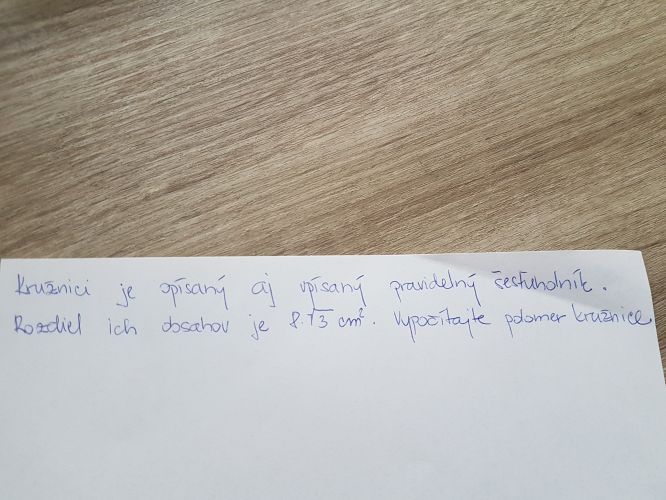 Kružnici je opísaný aj vpísaný pravidelný šesťuholník.
Rozdiel ich obsahov je 8.√3 cm². Vypočítajte polomer kružnice